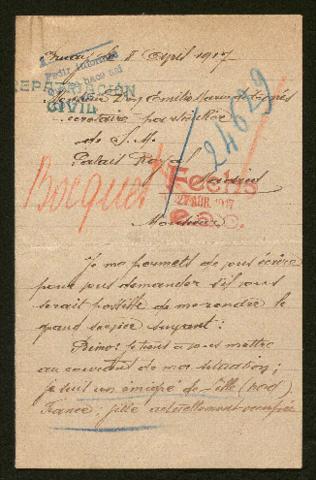 11 Avril 1917
REPATRIACIÓN
CIVIL
Monsieur Don Emilio Maria de Torrés
Secrétaire particulier
de S. M.
Palais Royal
24629
Bocquet
Fechs
27 ABR. 1917
Monsieur
Je me permets de vous écrire
pour vous demander s'il vous
serait possible de me rendre le
grand service suyant :
Primo: je tiens à vous mettre
au courant de ma situation ;
je suit un émigré de Lille (Nord)
France ; ville actuellement occupée